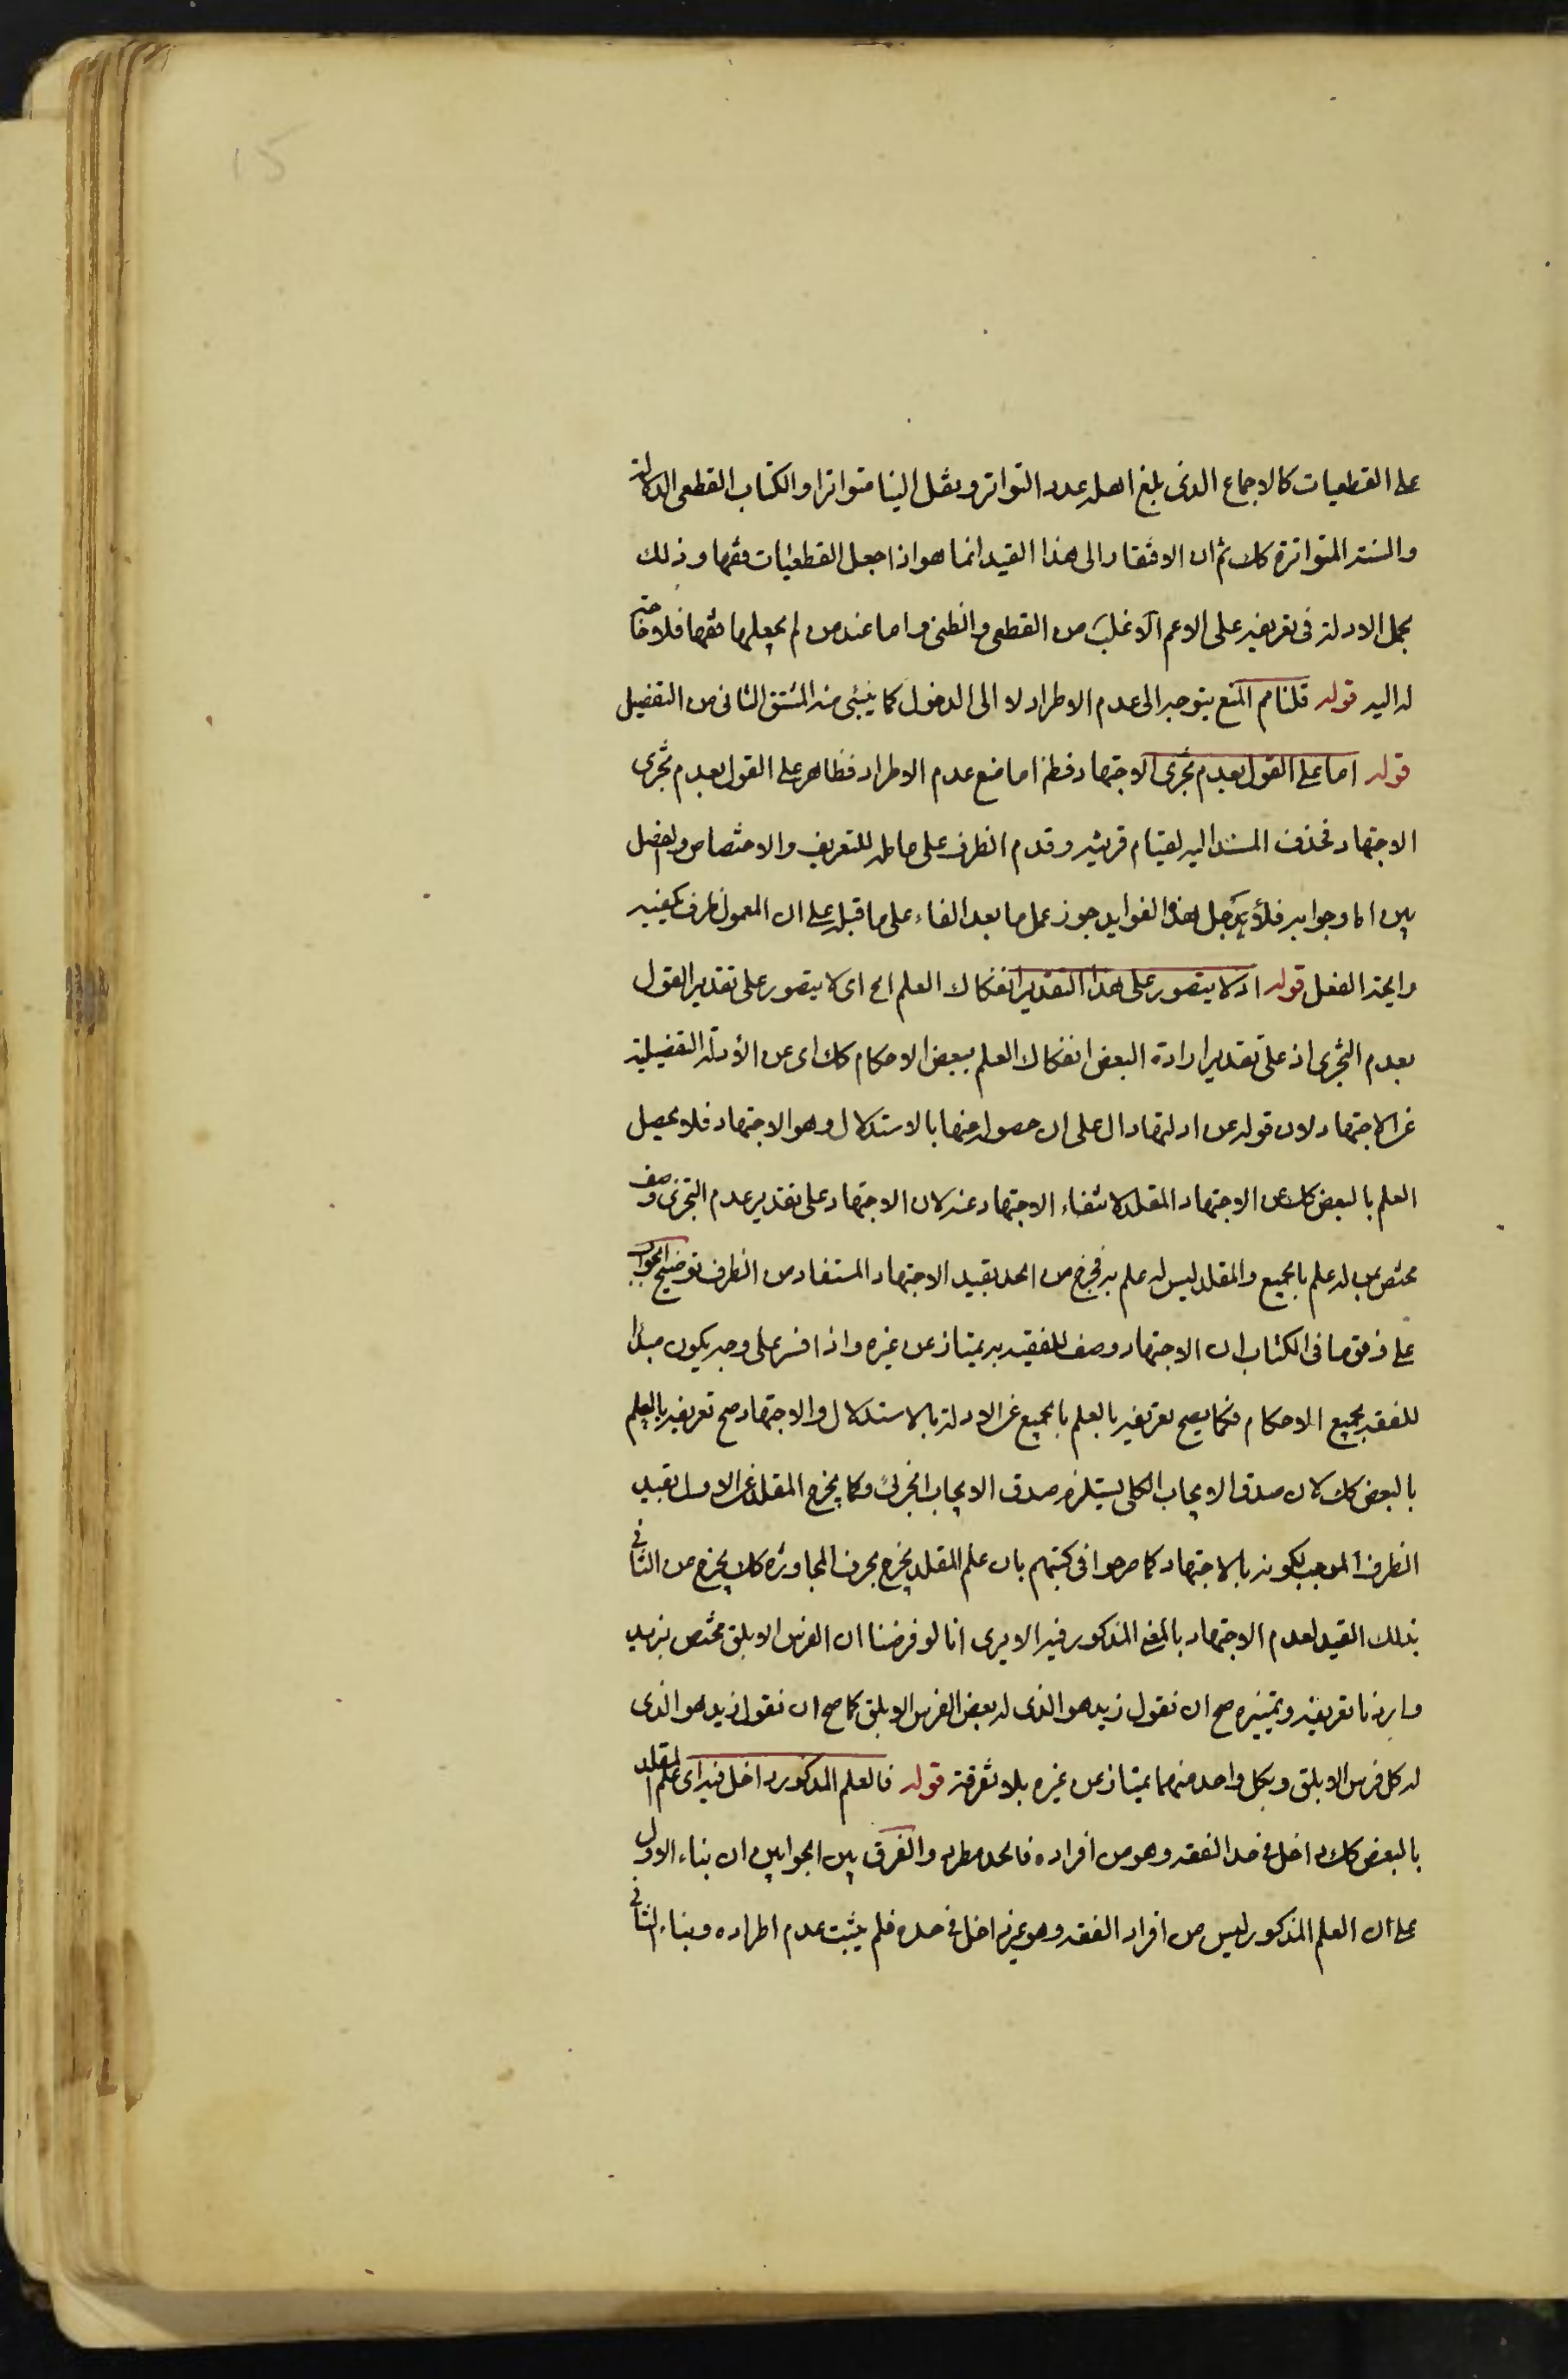 15
على القطعيات كالاجماع الذى بلغ اهله عدد التواتر ونقل الينا متواترا والكتاب القطعى الدلالة
والسنة المتواترة كك ثم ان الافتقار الى هذا القيد انما هو اذا جعل القطعيات فقها وذلك
بحمل الادلة فى تعريفه على الاعم الاغلب من القطعى والظنى واما عند من لم يجعلها فقها فلا حاجة
له اليه قوله قلنا مم المنع يتوجه الى عدم الاطراد لا الى الدخول كما ينبئى منه الشق الثانى من التفصيل
قوله اما على القول بعدم تجزى الاجتهاد فظ اما منع عدم الاطراد فظاهر على القول بعدم تجزى
الاجتهاد فحذف المسند اليه لقيام قرينة وقدم الظرف على عامله للتعريف والاختصاص والفصل
بين اما وجوابه فلأجل هذه الفوايد جوز عمل ما بعد الفاء على ما قبله على ان المعمول ظرف يكفيه
رايحة الفعل قوله اذ لا يتصور على هذا التقدير انفكاك العلم الح اى لا يتصور على تقدير القول
بعدم التجزى اذ على تقدير ارادة البعض انفكاك العلم ببعض الاحكام كك اى عن الأدلة التفصيلية
عن الاجتهاد لان قوله عن ادلتها دال على ان حصوله عنها بالاستدلال وهو الاجتهاد فلا يحصل
العلم بالبعض كك عن الاجتهاد المقلد لانتفاء الاجتهاد عنه لان الاجتهاد على تقدير عدم التجزى وصف
مختص بمن له علم بالجميع والمقلد ليس له علم به فخرج من الحد بقيد الاجتهاد المستفاد من الظرف توضيح الجواب
على وفق ما فى الكتاب ان الاجتهاد وصف للفقيه به يمتاز عن غيره واذا فسر على وجه يكون مبدأ
للفقه بجميع الاحكام فكما يصح تعريفه بالعلم بالجميع عن الادلة بالاستدلال والاجتهاد صح تعريفه بالعلم
بالبعض كك لان صدق الايجاب الكلى يستلزم صدق الايجاب الجزئى وكما يخرج المقلد عن الاول بقيد
الظرف الموجب لكونه بالاجتهاد كما صرحوا فى كتبهم بان علم المقلد يخرج بحرف المجاوزة كك يخرج من الثانى
بذلك القيد لعدم الاجتهاد بالمعنى المذكور فيه الا يرى انا لو فرضنا ان الفرس الابلق مختص بزيد
واردنا تعريفه وتمييزه صح ان نقول زيد هو الذى له بعض الفرس الابلق كما صح ان نقول زيد هو الذى
له كل فرس الابلق وبكل واحد منهما يمتاز عن غيره بلا تفرقة قوله فالعلم المذكور داخل فيه اى علم المقلد
بالبعض كك داخل فى حد الفقه وهو من افراده فالحد مطرد والفرق بين الجوابين ان بناء الاول
على ان العلم المذكور ليس من افراد الفقه وهو غير داخل فى حده فلم يثبت عدم اطراده وبناء الثانى